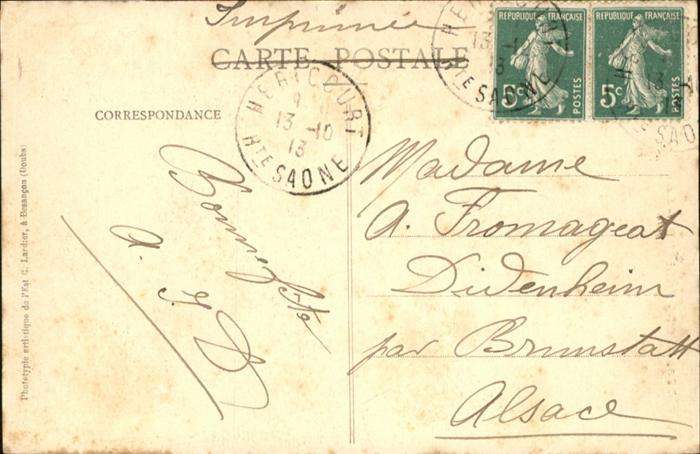 Imprimée
CARTE POSTALE
CORRESPONDANCE
HERICOURT
13-10
13
HTE SAONE
HERICOURT
13
HTE SAONE
REPUBLIQUE FRANÇAISE
5c
POSTES
REPUBLIQUE FRANÇAISE
5c
POSTES
Bonne fête
A. J D
Madame
A. Fromageat
Didenheim
par Brunstatt
Alsace
Phototypie artistique de l'Est C. Lardier, à Besançon (Doubs)